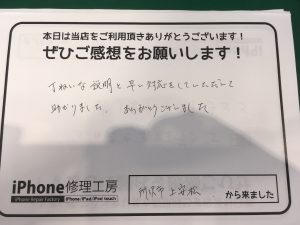 本日は当店をご利用頂きありがとうございます！
ぜひご感想をお願いします！
ていねいな説明と早い対応をしていただいて
助かりました。ありがとうございました
iPhone修理工房
iPhone Repair Factory
iPhone/iPad/iPod touch
所沢市 上安松
から来ました